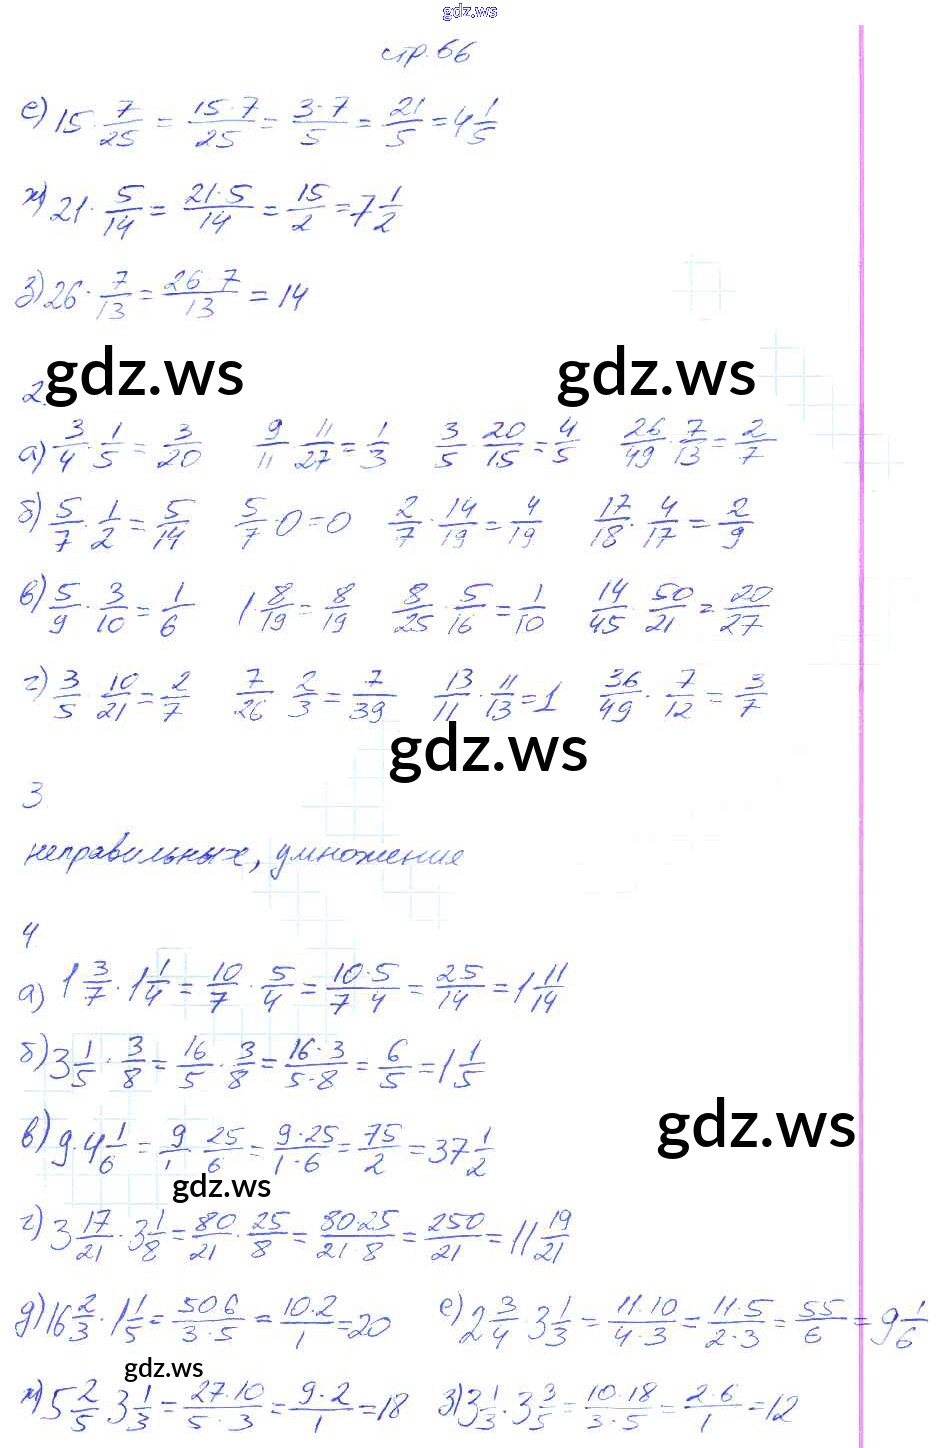 gdz.ws
стр. 66
е) 15 · 7/25 = 15·7/25 = 3·7/5 = 21/5 = 4 1/5
ж) 21 · 5/14 = 21·5/14 = 15/2 = 7 1/2
з) 26 · 7/13 = 26·7/13 = 14
gdz.ws gdz.ws
2.
а) 3/4 · 1/5 = 3/20 9/11 · 11/27 = 1/3 3/5 · 20/15 = 4/5 26/49 · 7/13 = 2/7
б) 5/7 · 1/2 = 5/14 5/7 · 0 = 0 2/7 · 14/19 = 4/19 17/18 · 4/17 = 2/9
в) 5/9 · 3/10 = 1/6 1 · 8/19 = 8/19 8/25 · 5/16 = 1/10 14/45 · 50/21 = 20/27
г) 3/5 · 10/21 = 2/7 7/26 · 2/3 = 7/39 13/11 · 11/13 = 1 36/49 · 7/12 = 3/7
gdz.ws
3
неправильных, умножение
4
а) 1 3/7 · 1 1/4 = 10/7 · 5/4 = 10·5/7 4 = 25/14 = 1 11/14
б) 3 1/5 · 3/8 = 16/5 · 3/8 = 16·3/5·8 = 6/5 = 1 1/5
gdz.ws
в) 9 · 4 1/6 = 9/1 · 25/6 = 9·25/1·6 = 75/2 = 37 1/2
gdz.ws
г) 3 17/21 · 3 1/8 = 80/21 · 25/8 = 80·25/21 8 = 250/21 = 11 19/21
д) 16 2/3 · 1 1/5 = 50 6/3·5 = 10·2/1 = 20 е) 2 3/4 · 3 1/3 = 11·10/4·3 = 11·5/2·3 = 55/6 = 9 1/6
gdz.ws
ж) 5 2/5 · 3 1/3 = 27·10/5·3 = 9·2/1 = 18 з) 3 1/3 · 3 3/5 = 10·18/3·5 = 2·6/1 = 12